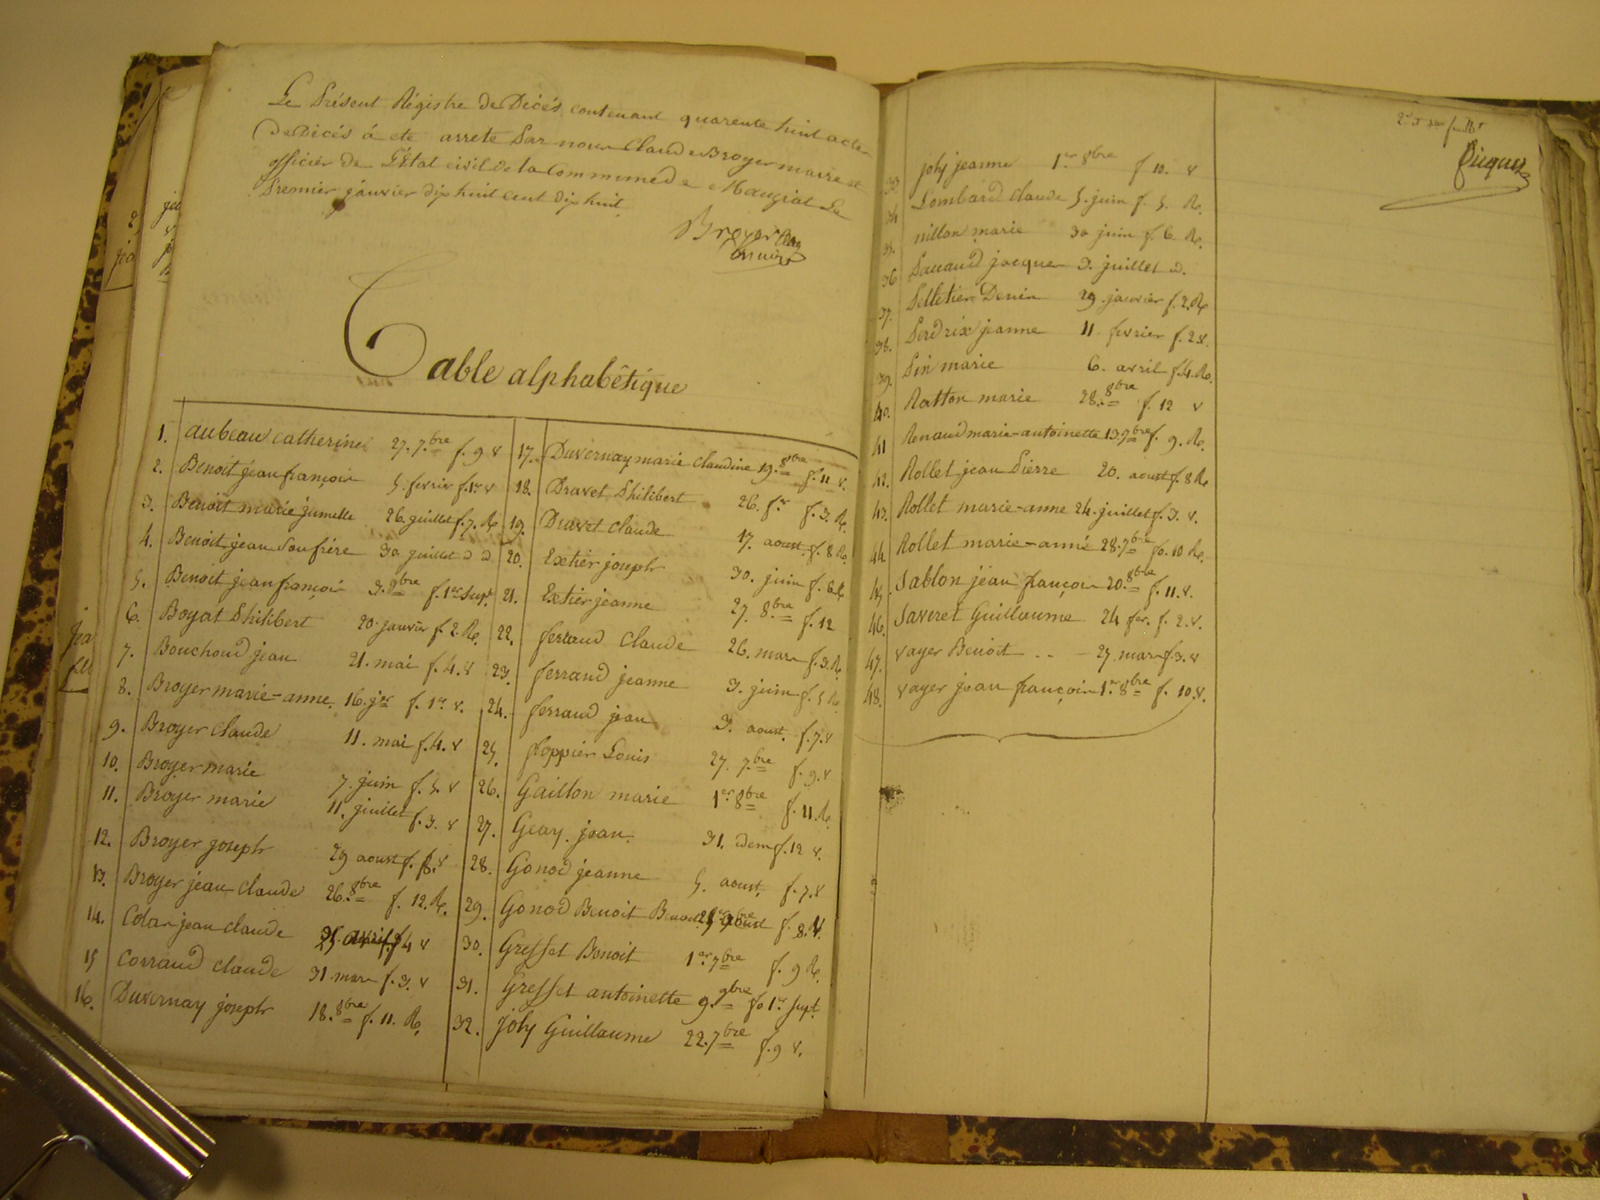 Le Présent Régistre de Décés contenant quarente huit actes
de Décés á ete arrete Par nous Claude Broyer maire et
officier de L'état civil de la Commune de Mangiat Le
Premier janvier dix huit cent dix huit
Broyer
maire
Table alphabêtique
1. aubeau catherine 27. 7bre f. 9 v
2. Benoit jean françois 5. fevrier f. 1er v
3. Benoit marie jumelle 26. juillet f. 7. Ro
4. Benoit jean Son frére 30. juillet d d.
5. Benoit jean françois 3. 9bre f. 1er Supt.
6. Boyat Philibert 20. janvier f. 2. Ro
7. Bouchoud jean 21. mai f. 4. v
8. Broyer marie-anne 16. jer f. 1er v.
9. Broyer Claude 11. mai f. 4. v
10. Broyer marie 7. juin f. 5. v
11. Broyer marie 11. juillet f. 3. v
12. Broyer joseph 29 aoust f. 8. v
13. Broyer jean Claude 26. 8bre f. 12. Ro
14. Colas jean claude avril f 4 v
15 Corraud claude 31 mars f. 3. v
16. Duvernay joseph 18. 8bre f. 11. Ro
17. Duvernay marie Claudine 19. 8bre f. 11 v.
18. Dravet Philibert 26. fer f. 3. Ro
19. Duret Claude 17. aoust f. 8 Ro
20. Extier joseph 30. juin f. 6
21. Extier jeanne 27. 8bre f. 12
22. ferraud Claude 26. mars f. 3. Ro
23. ferraud jeanne 3. juin f. 5 Ro
24. ferraud jean 3. aoust f. 7. v
25. floppier Louis 27. 7bre f. 9. v
26. Gaillon marie 1er 8bre f. 11. Ro
27. Geay. jean 31. dem f. 12 v.
28. Gonod jeanne 5. aoust. f. 7. v
29. Gonod Benoit f. 8. v.
30. Gresset Benoit 1er 7bre f. 9 Ro
31. Gresset antoinette 9. 9bre fo 1er Supt
32. Joly Guillaume 22. 7bre f. 9 v.
2
Piquet
33. joly jeanne 1er 8bre f 10. v
34 Lombard Claude 5. juin f. 5. Ro
35. nillon marie 30 juin f. 6. Ro
36 Pauaud jacques 3. juillet d.
37. Pelletier Denis 29. janvier f. 2. Ro
38. Perdrix jeanne 11. fevrier f. 2 v.
39. Pin marie 6. avril f. 4. Ro.
40. Ratton marie 28. 8bre f. 12 v
41 Renaud marie-antoinette 13. 7bre f. 9. Ro
42. Rollet jean Pierre 20. aoust f. 8 Ro
43. Rollet marie-anne 24. juillet f. 3. v.
44. Rollet marie-anne 28. 7bre fo. 10 Ro
45. Sablon jean françois 20. 8bre f. 11. v.
46. Saveret Guillaume 24 fer. f. 2. v.
47. vayer Benoit .. - 27. mars f. 3. v
48. vayer jean françois 1er 8bre f. 10. v.